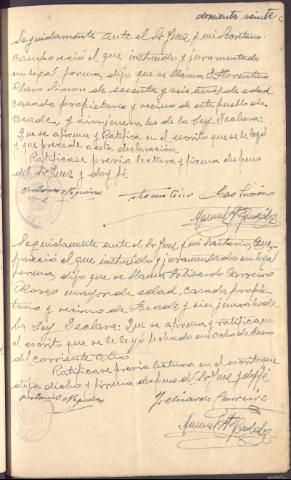 doscientos veinte
Seguidamente ante el Sr Juez y mi Secretario
compareció el que instruido y juramentado
en legal forma, dijo que se llama Florentino
Simon de sesenta y seis años de edad
casado propietario y vecino de este pueblo de
y sin generales de la Ley Declara:
Que se afirma y Ratifica en el escrito que se le leyó
y que precede a esta declaración.
Ratificase previa lectura y firma despues
del Sr Juez y doy fé
Antonio Florentino Simón
Manuel
Seguidamente ante el Sr Juez y mi Secretario, Com-
pareció el que instruido y juramentado en legal
forma, dijo que se llama Felisardo Carreiro
mayor de edad, casado, propie-
tario y vecino de y sin generales de
la Ley Declara: Que se afirma y ratifica en
el escrito que se le leyó fechado en ocho de Enero
del corriente año
Ratificase previa lectura en el escrito que
dijo dicho y firma despues del Sr Juez y doy fé
Antonio Felisardo Carreiro
Manuel